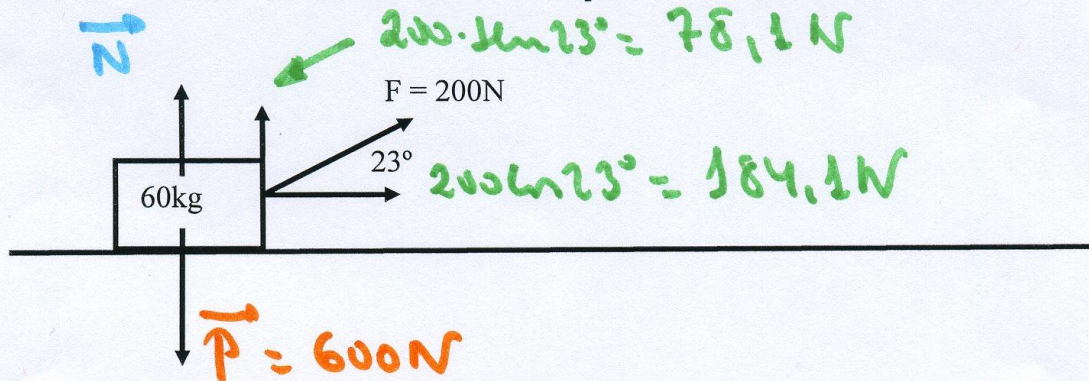 N
200·sen23º = 78,1N
F = 200N
23º
200cos23º = 184,1N
60kg
P = 600N